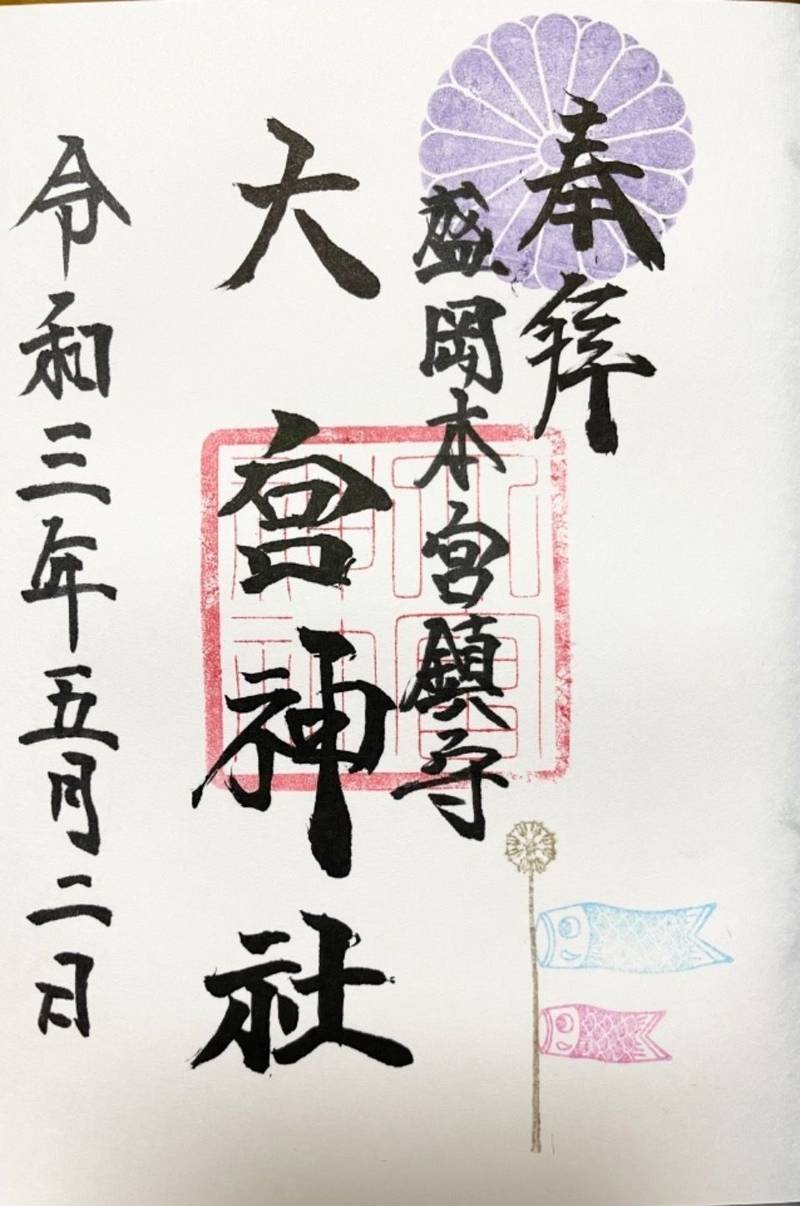 奉拝
盛岡本宮鎮守
大宮神社
令和三年五月二日